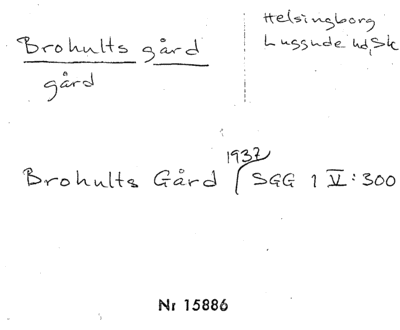 Brohults gård
gård
Helsingborg
Luggude hd, Sk
Brohults Gård 1937 SGG 1 V:300
Nr 15886